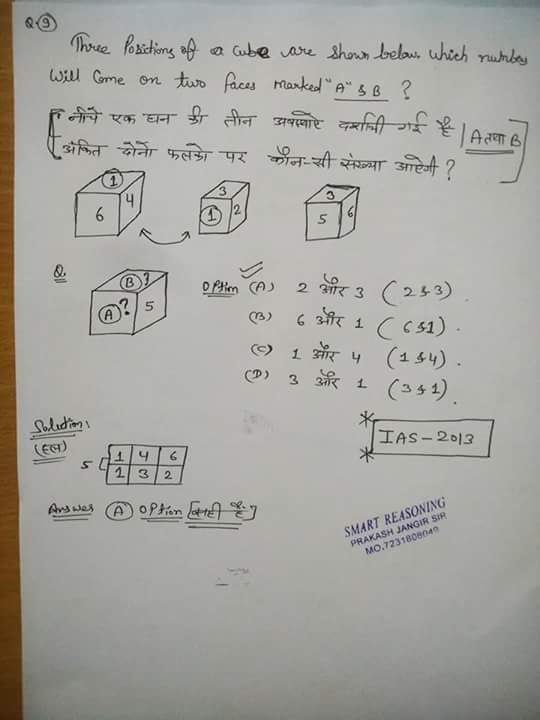 Q. 9
Three Positions of a cube are shown below. which numbers
will come on two faces marked "A" & B ?
नीचे एक घन की तीन अवस्थाएं दर्शायी गई है | A तथा B
अंकित दोनों फलकों पर कौन-सी संख्या आएगी ?
1 6 4
3 1 2
3 5 6
Q.
B ? A ? 5
Option (A) 2 और 3 (2 & 3).
(B) 6 और 1 (6 & 1).
(C) 1 और 4 (1 & 4).
(D) 3 और 1 (3 & 1).
* IAS - 2013
*
Solution:
(हल)
1 4 6
5
1 3 2
Answer (A) Option [सही है]
SMART REASONING
PRAKASH JANGIR SIR
MO.7231808049